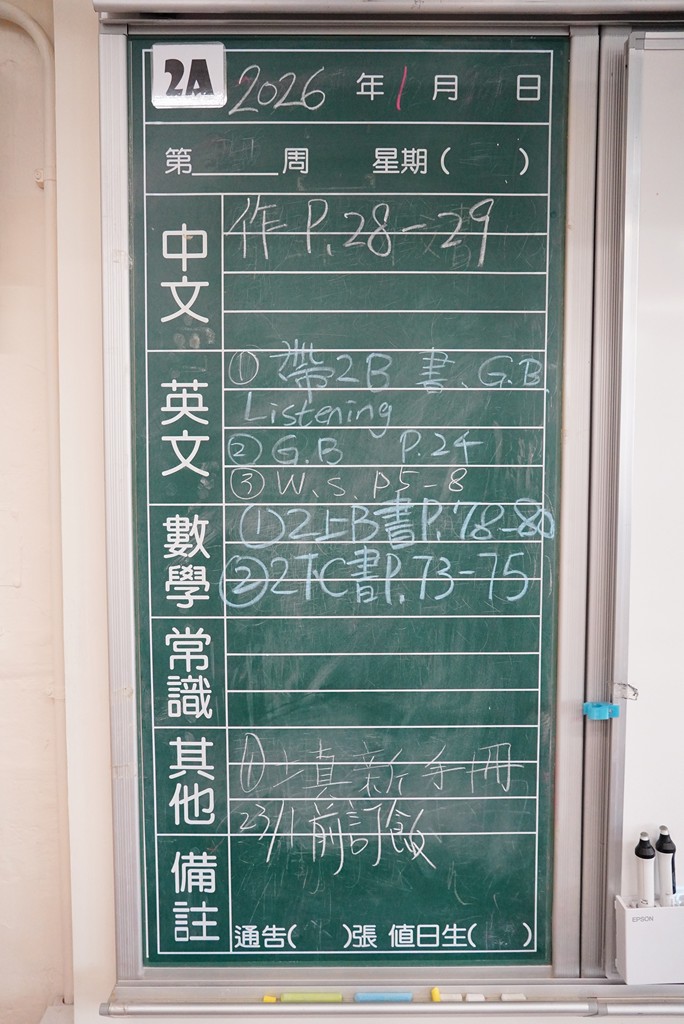 2A 2026 年 1 月 日
第 周 星期( )
中文
作 P.28-29
英文
① 帶2B 書、G.B
Listening
② G.B P.24
③ W.S. P5-8
數學
①2上B書P.78-80
②2下C書P.73-75
常識
其他
① 填新手冊
23/1前訂飯
備註
通告( )張 值日生( )
EPSON